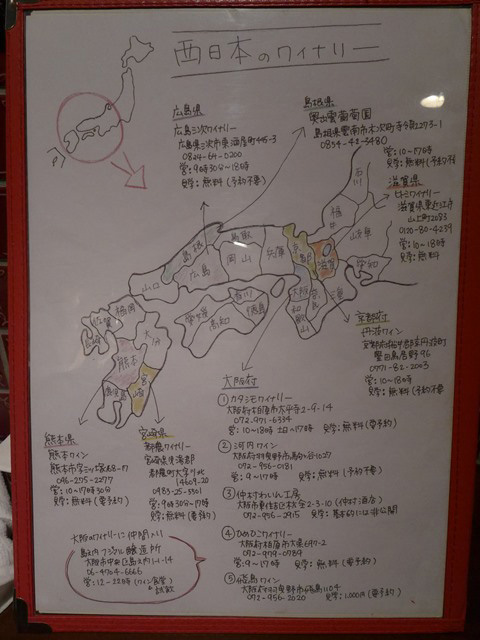 西日本のワイナリー
広島県
広島三次ワイナリー
広島県三次市東酒屋町445-3
0824-64-0200
営:9時30分〜18時
見学:無料(予約不要)
島根県
奥出雲葡萄園
島根県雲南市木次町寺領2273-1
0854-42-3480
営:10〜17時
見学:無料(予約不
滋賀県
ヒトミワイナリー
滋賀県東近江市
山上町2083
0120-80-4239
営:10〜18時
見学:無料
石川
福井
岐阜
愛知
三重
滋賀
京都
兵庫
鳥取
島根
岡山
広島
山口
大阪
奈良
和歌山
香川
徳島
愛媛
高知
福岡
佐賀
長崎
大分
熊本
宮崎
鹿児島
京都府
丹波ワイン
京都府船井郡京丹波町
豊田鳥居野96
0771-82-2003
営:10〜18時
見学:無料(予約要
大阪府
①カタシモワイナリー
大阪府柏原市太平寺2-9-14
072-971-6334
営:10〜18時 土日〜17時 見学:無料(要予約)
②河内ワイン
大阪府羽曳野市駒ヶ谷1027
072-956-0181
営:9〜17時 見学:無料(予約不要)
③仲村わいん工房
072-956-2915 見学:基本的には非公開
④ひめひこワイナリー
大阪府柏原市大県697-2
072-979-0789
営:9〜17時 見学:無料(要予約)
⑤飛鳥ワイン
大阪府羽曳野市飛鳥1104
072-956-2020 見学:1,000円(要予約)
熊本県
熊本ワイン
096-275-2277
営:10〜17時30分
見学:無料(要予約)
宮崎県
都農ワイナリー
宮崎県児湯郡
都農町大字川北
14609-20
0983-25-5501
営:9時30分〜17時
見学:無料(要予約)
大阪のワイナリーに仲間入り
島之内フジマル醸造所
大阪市中央区島之内1-1-14
06-4704-6666
営:12〜22時